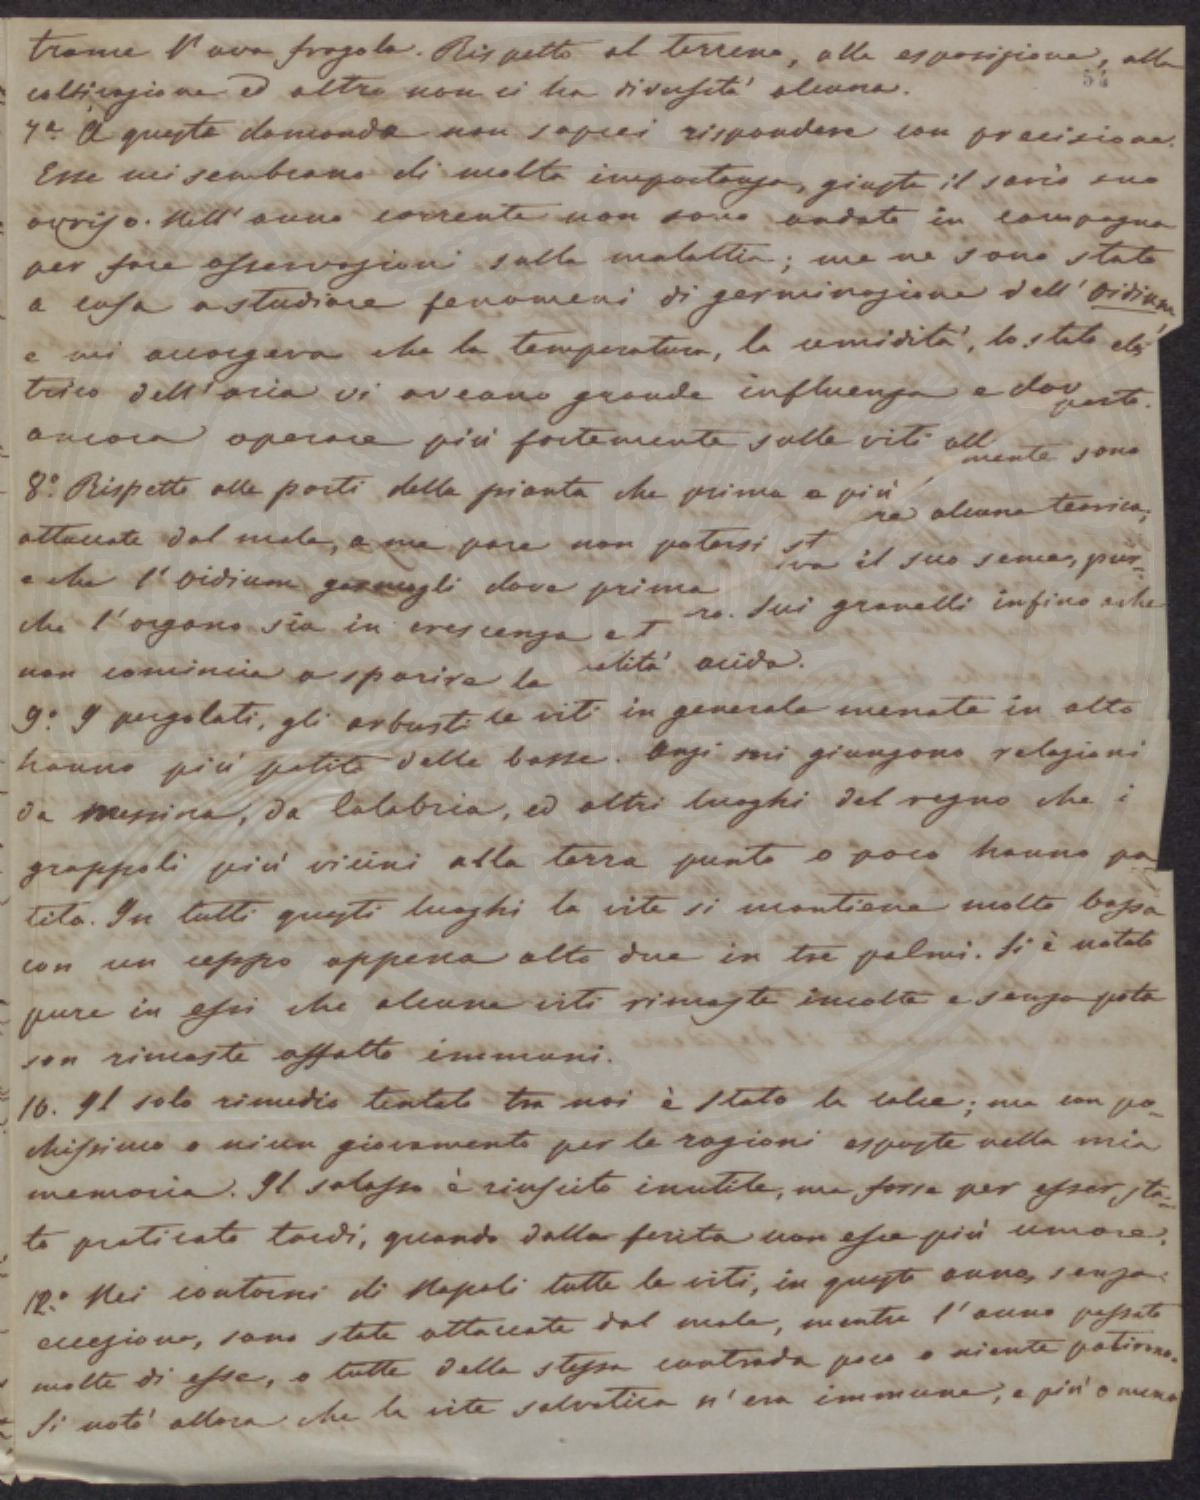 tranne l'uva fragola. Rispetto al terreno, alla esposizione, alla
54
coltivazione ed altro non ci ha diversità alcuna.
7.a A queste domande non saprei rispondere con precisione.
Esse mi sembrano di molta importanza, giusta il savio suo
avviso. Nell'anno corrente non sono andato in campagna
per fare osservazioni sulla malattia; me ne sono stato
a casa a studiare fenomeni di germinazione dell'Oidium
e mi accorgeva che la temperatura, la umidità, lo stato elet
trico dell'aria vi aveano grande influenza e dov
ancora operare più fortemente sulle viti all
perte.
8.o Rispetto alle parti della pianta che prima e più
mente sono
attaccate dal male, a me pare non potersi st
re alcuna teorica;
e che l'Oidium germogli dove prima
va il suo seme, pur-
che l'organo sia in crescenza e t
ro. Sui granelli infino a che
non comincia a sparire la
alità acida.
9.o I pergolati, gli arbusti le viti in generale menate in alto
hanno più patito delle basse. Anzi mi giungono relazioni
da Messina, da Calabria, ed altri luoghi del regno che i
grappoli più vicini alla terra punto o poco hanno pa
tito. In tutti questi luoghi la vite si mantiene molto bassa
con un ceppo appena alto due in tre palmi. Si è notato
pure in essi che alcune viti rimaste incolte e senza pota
son rimaste affatto immuni.
10. Il solo rimedio tentato tra noi è stato la calce; ma con po-
chissimo o niun giovamento per le ragioni esposte nella mia
memoria. Il salasso è riuscito inutile, ma forse per esser sta-
to praticato tardi, quando dalla ferita non esce più umore.
12.o Nei contorni di Napoli tutte le viti, in questo anno, senza
eccezione, sono state attaccate dal male, mentre l'anno passato
molte di esse, o tutte della stessa contrada poco o niente patirono.
Si notò allora che la vite salvatica n'era immune, e più o meno